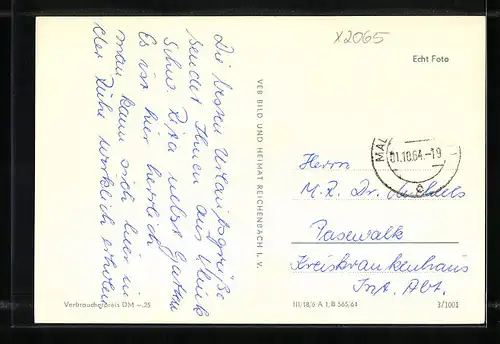 X2065
Echt Foto
Die besten Urlaubsgrüße
sendet Ihnen aus Klink
Schw. Rita nebst Gatten
Es ist hier herrlich
man kann sich hier in
der Ruhe wirklich erholen
VEB BILD UND HEIMAT REICHENBACH I. V.
MAL
01.10.64.-19
e
Herrn
M. R. Dr.
Pasewalk
Kreiskrankenhaus
Int. Abt.
Verbraucherpreis DM –.25
III/18/6 A 1, B 565/64
3/1001